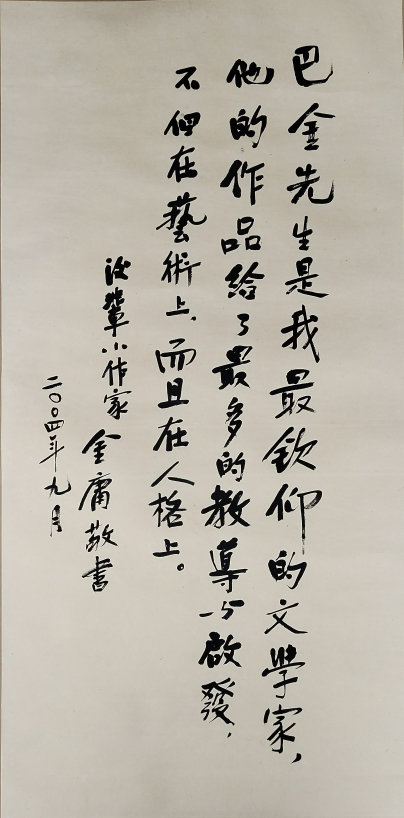 巴金先生是我最欽仰的文學家，
他的作品給了最多的教導与啟發，
不但在藝術上、而且在人格上。
後輩小作家
金庸敬書
二〇〇四年九月